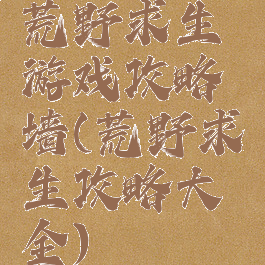 荒野求生
游戏攻略
墙(荒野求
生攻略大
全)